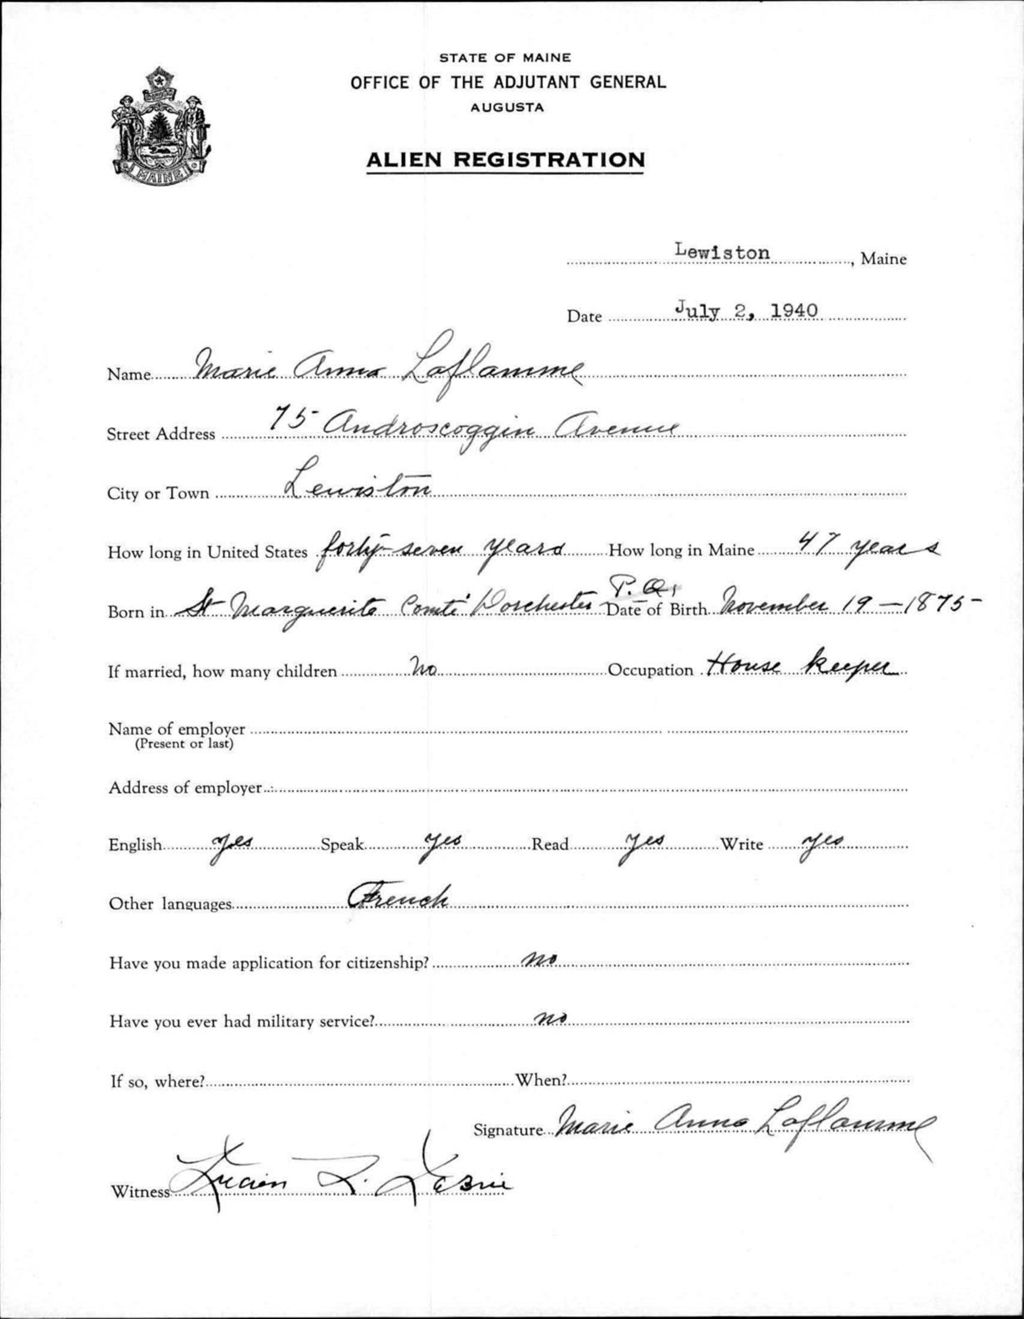 STATE OF MAINE
OFFICE OF THE ADJUTANT GENERAL
AUGUSTA
ALIEN REGISTRATION
MAINE
Lewiston, Maine
Date July 2, 1940
Name Marie Anna Laflamme
Street Address 75 Androscoggin Avenue
City or Town Lewiston
How long in United States forty-seven years How long in Maine 47 years
Born in St Marguerite Comté Dorchester P.Q. Date of Birth November 19-1875-
If married, how many children No Occupation House keeper
Name of employer
(Present or last)
Address of employer
English yes Speak yes Read yes Write yes
Other languages French
Have you made application for citizenship? no
Have you ever had military service? no
If so, where? When?
Signature Marie Anna Laflamme
Witness Lucien L.